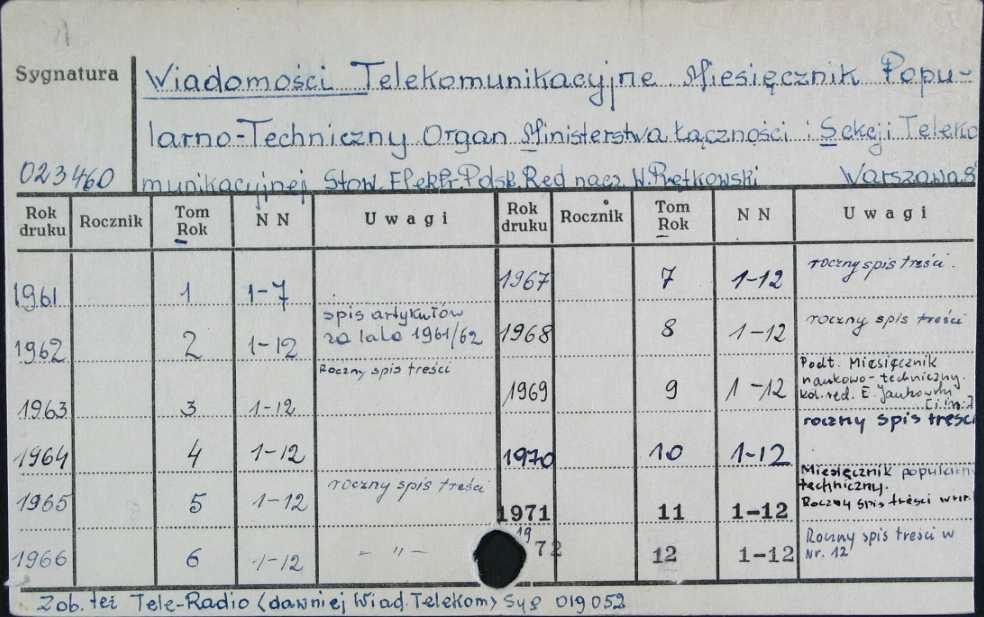 Sygnatura
Wiadomości Telekomunikacyjne Miesięcznik Popu-
larno-Techniczny Organ Ministerstwa Łączności i Sekcji Teleko
023460 munikacyjnej Stow. Elektr. Polsk. Red. nacz. W. Rętkowski Warszawa
Rok druku Rocznik Tom Rok N N Uwagi Rok druku Rocznik Tom Rok N N Uwagi
1961 1 1-7 1967 7 1-12 roczny spis treści.
1962 2 1-12 spis artykułów za lata 1961/62 1968 8 1-12 roczny spis treści
1963 3 1-12 Roczny spis treści 1969 9 1-12 Podt. Miesięcznik naukowo-techniczny. kol. red. E. [i in.]
1964 4 1-12 1970 10 1-12 roczny spis treści
1965 5 1-12 roczny spis treści 1971 11 1-12 Miesięcznik popularn techniczny. Roczny spis treści w
1966 6 1-12 - " - 1972 12 1-12 Roczny spis treści w Nr. 12
Zob. też Tele-Radio (dawniej Wiad. Telekom) Syg 019052